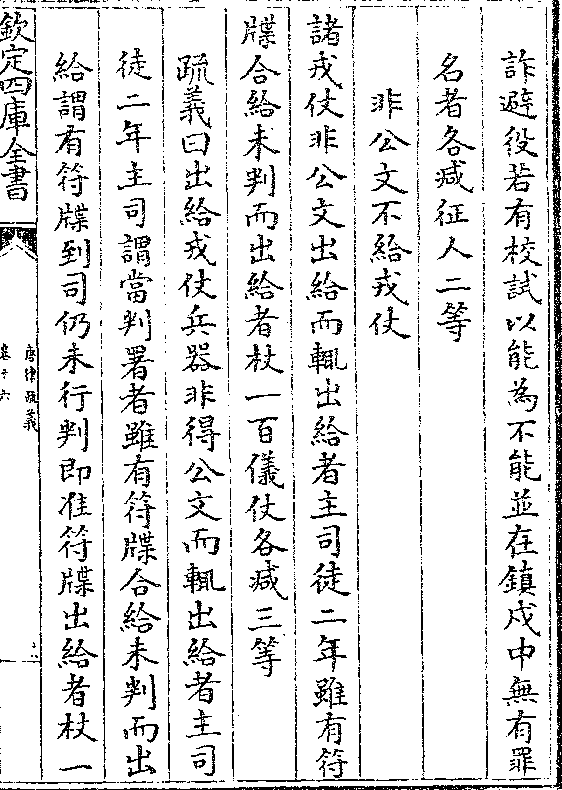 詐避役若有校試以能為不能並在鎮戍中無有罪
名者各减征人二等
非公文不給戎仗
諸戎仗非公文出給而輒出給者主司徒二年雖有符
牒合給未判而出給者杖一百儀仗各減三等
疏義曰出給戎仗兵器非得公文而輒出給者主司
徒二年主司謂當判署者雖有符牒合給未判而出
給謂有符牒到司仍未行判即准符牒出給者杖一
欽定四庫全書
唐律疏義
卷十六